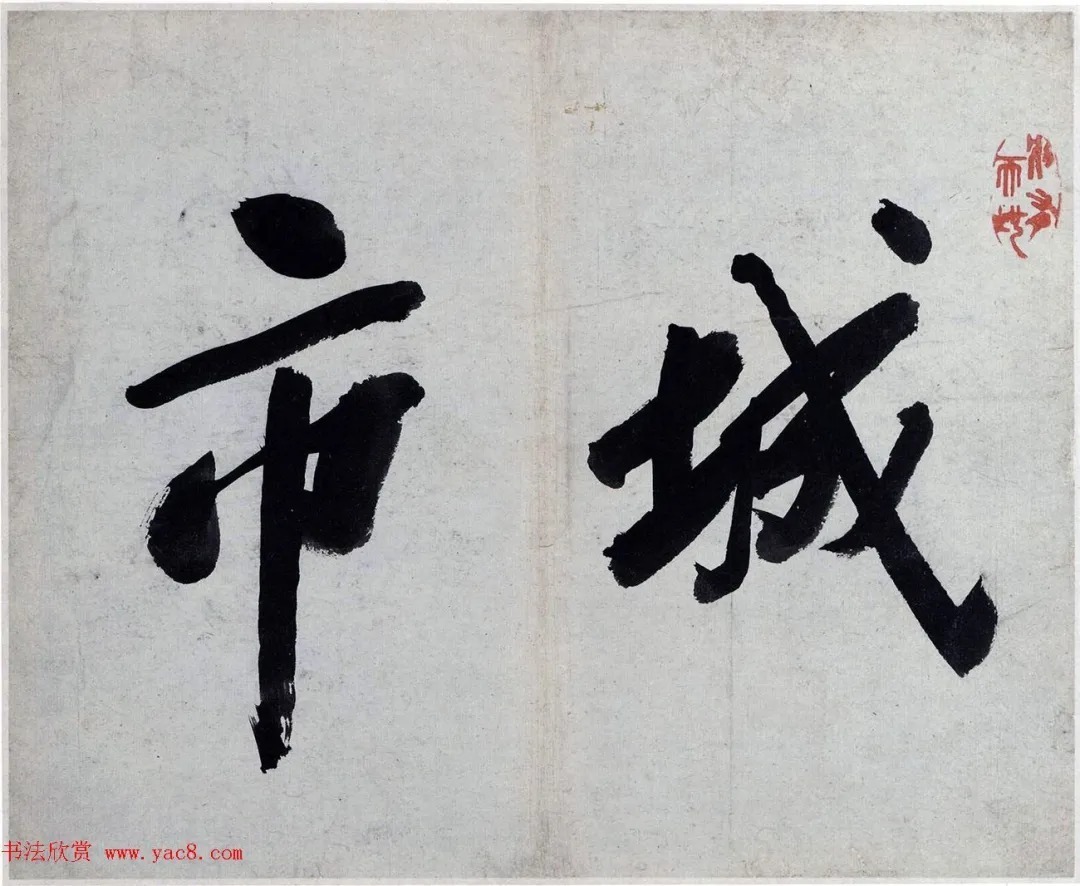 城
市
书法欣赏 www.yac8.com